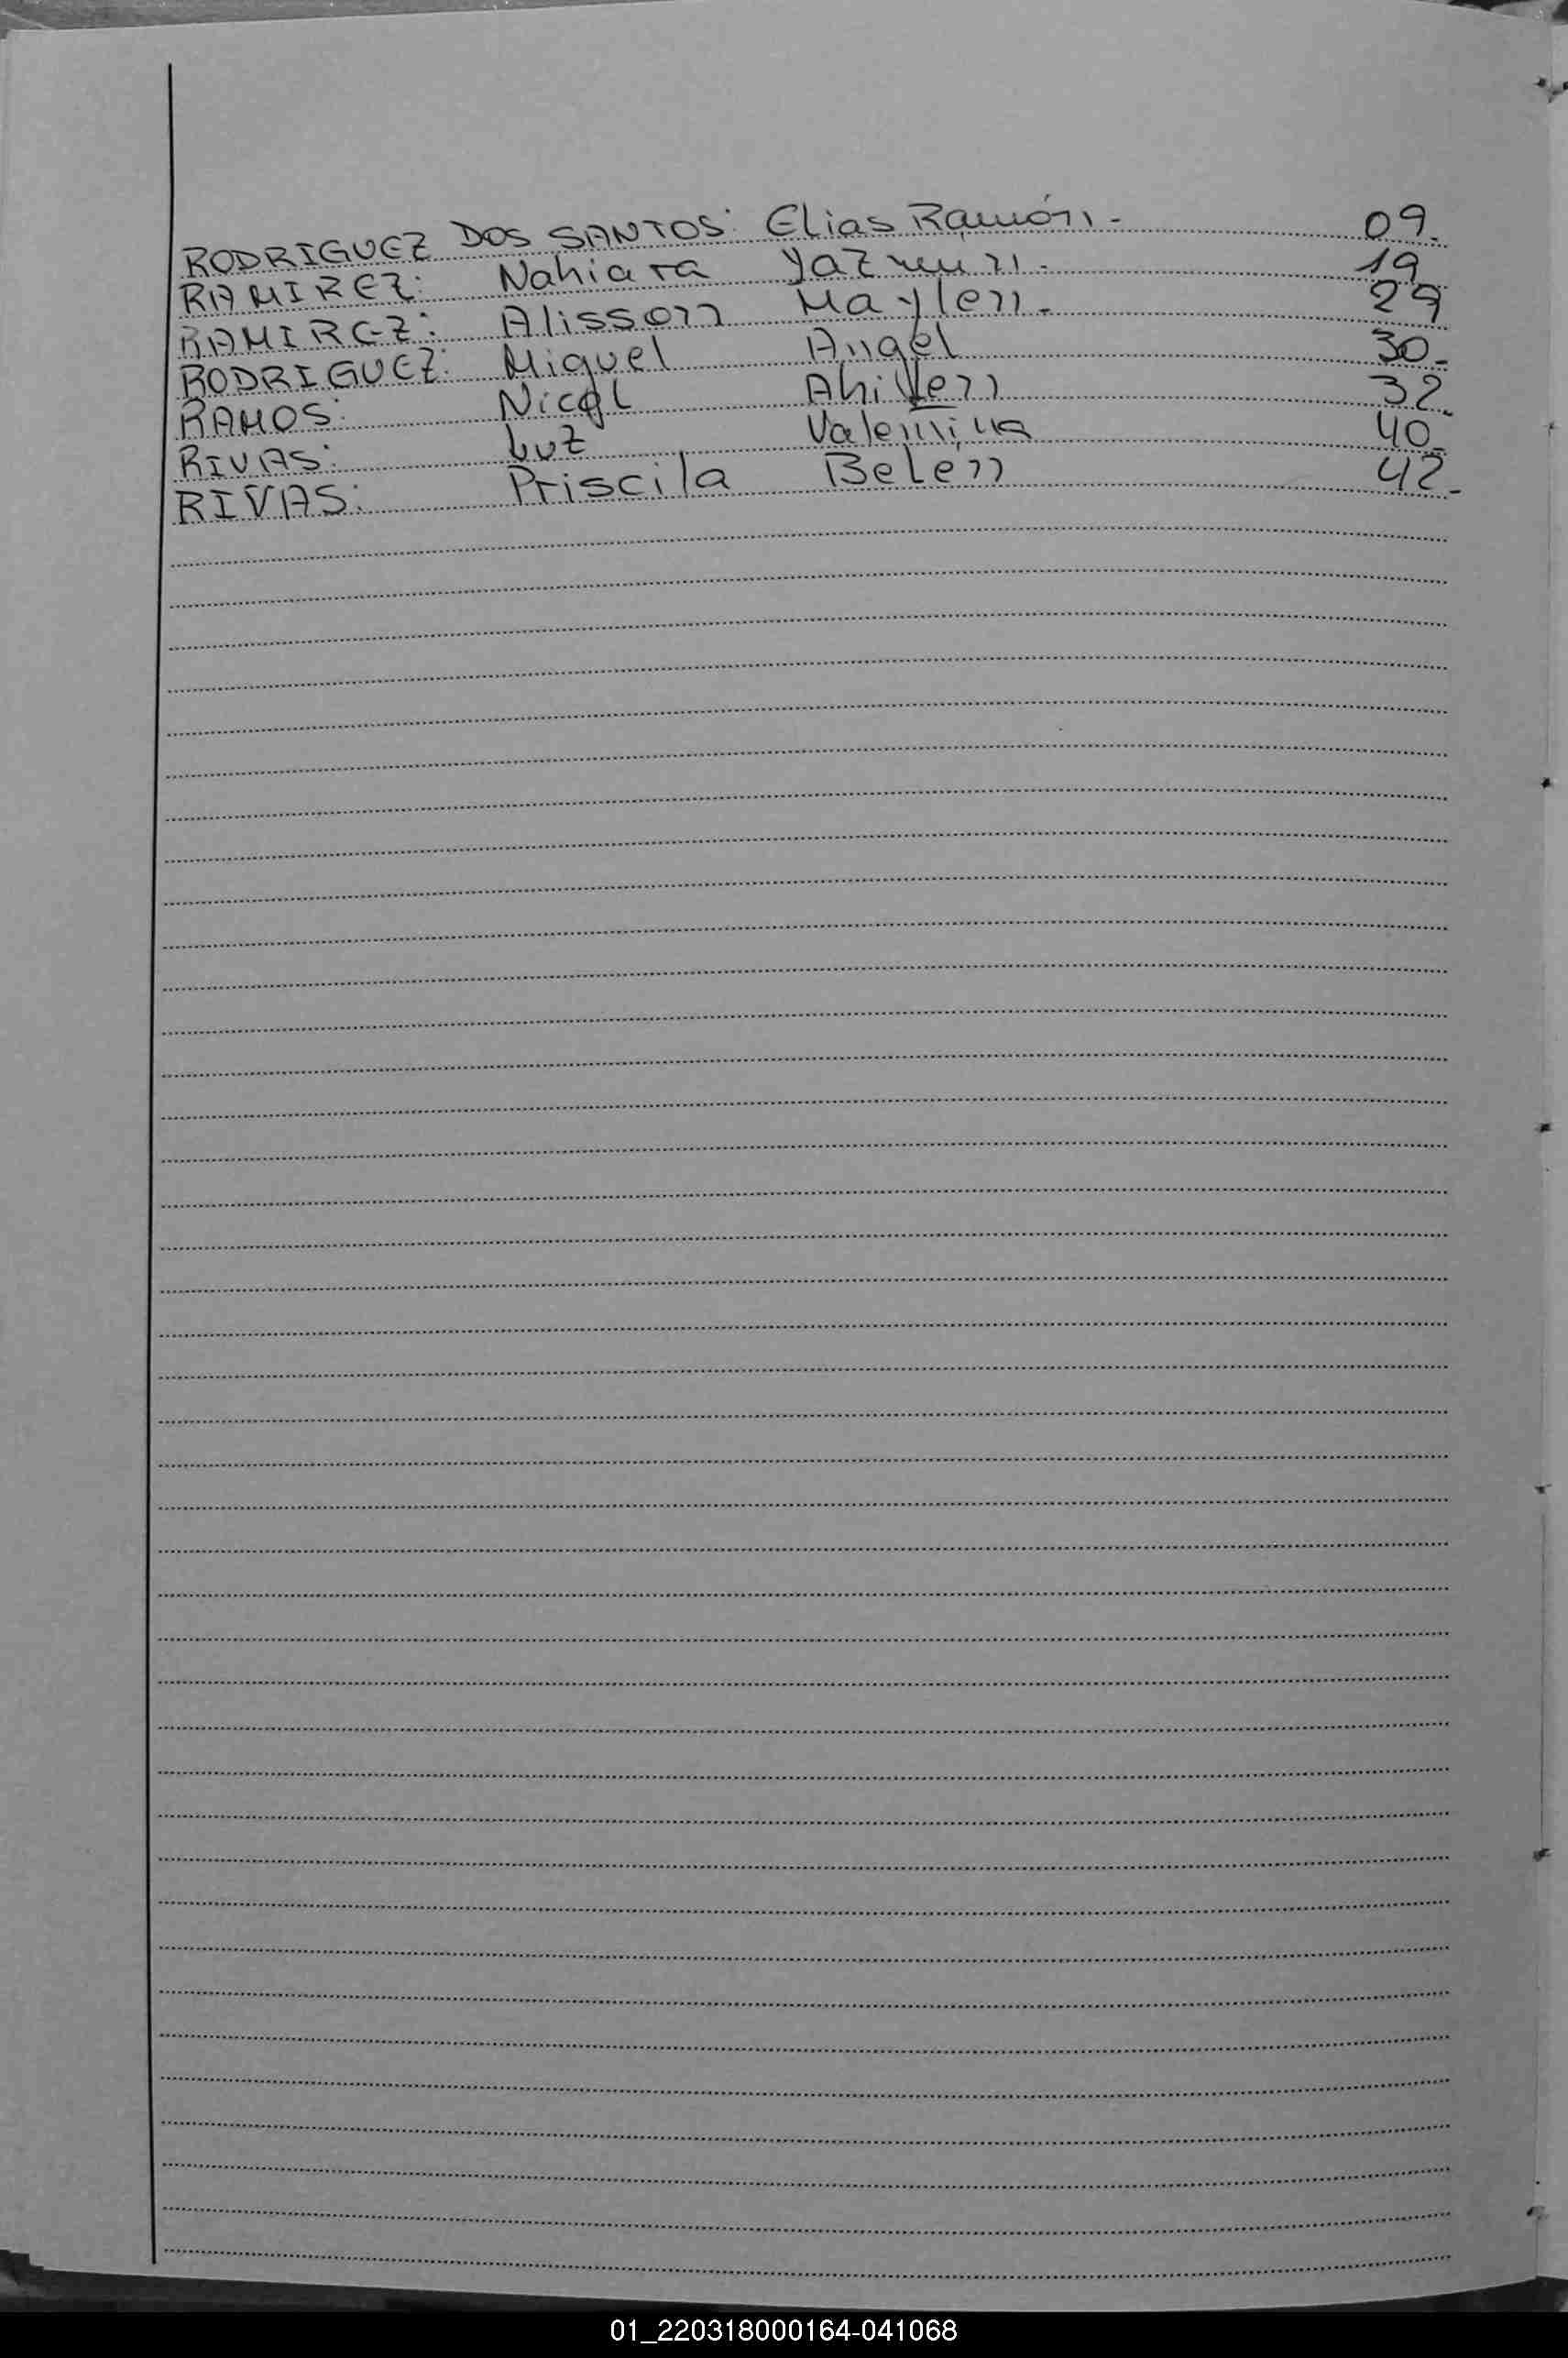 RODRIGUEZ DOS SANTOS: Elias Ramón.- 09.
RAMIREZ: Nahiara Yazmin.- 19
RAMIREZ: Alisson Maylen.- 29
RODRIGUEZ: Miguel Angel 30.-
RAMOS: Nicol Ahilen 32.
RIVAS: Luz Valentina 40.
RIVAS: Priscila Belén 42.-
01_220318000164-041068